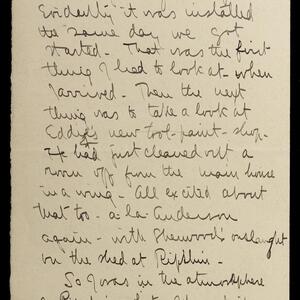 Evidently it was installed
the same day we got
started - That was the first
thing I had to look at - when
I arrived - Then the next
thing was to take a look at
Eddy's new tool-paint-shop -
He had just cleaned out a
room off from the main house
in a wing - All excited about
that too - a-la-Anderson
again - with Sherwood's onslaught
on the shed at Ripshin.
So I was in the atmosphere